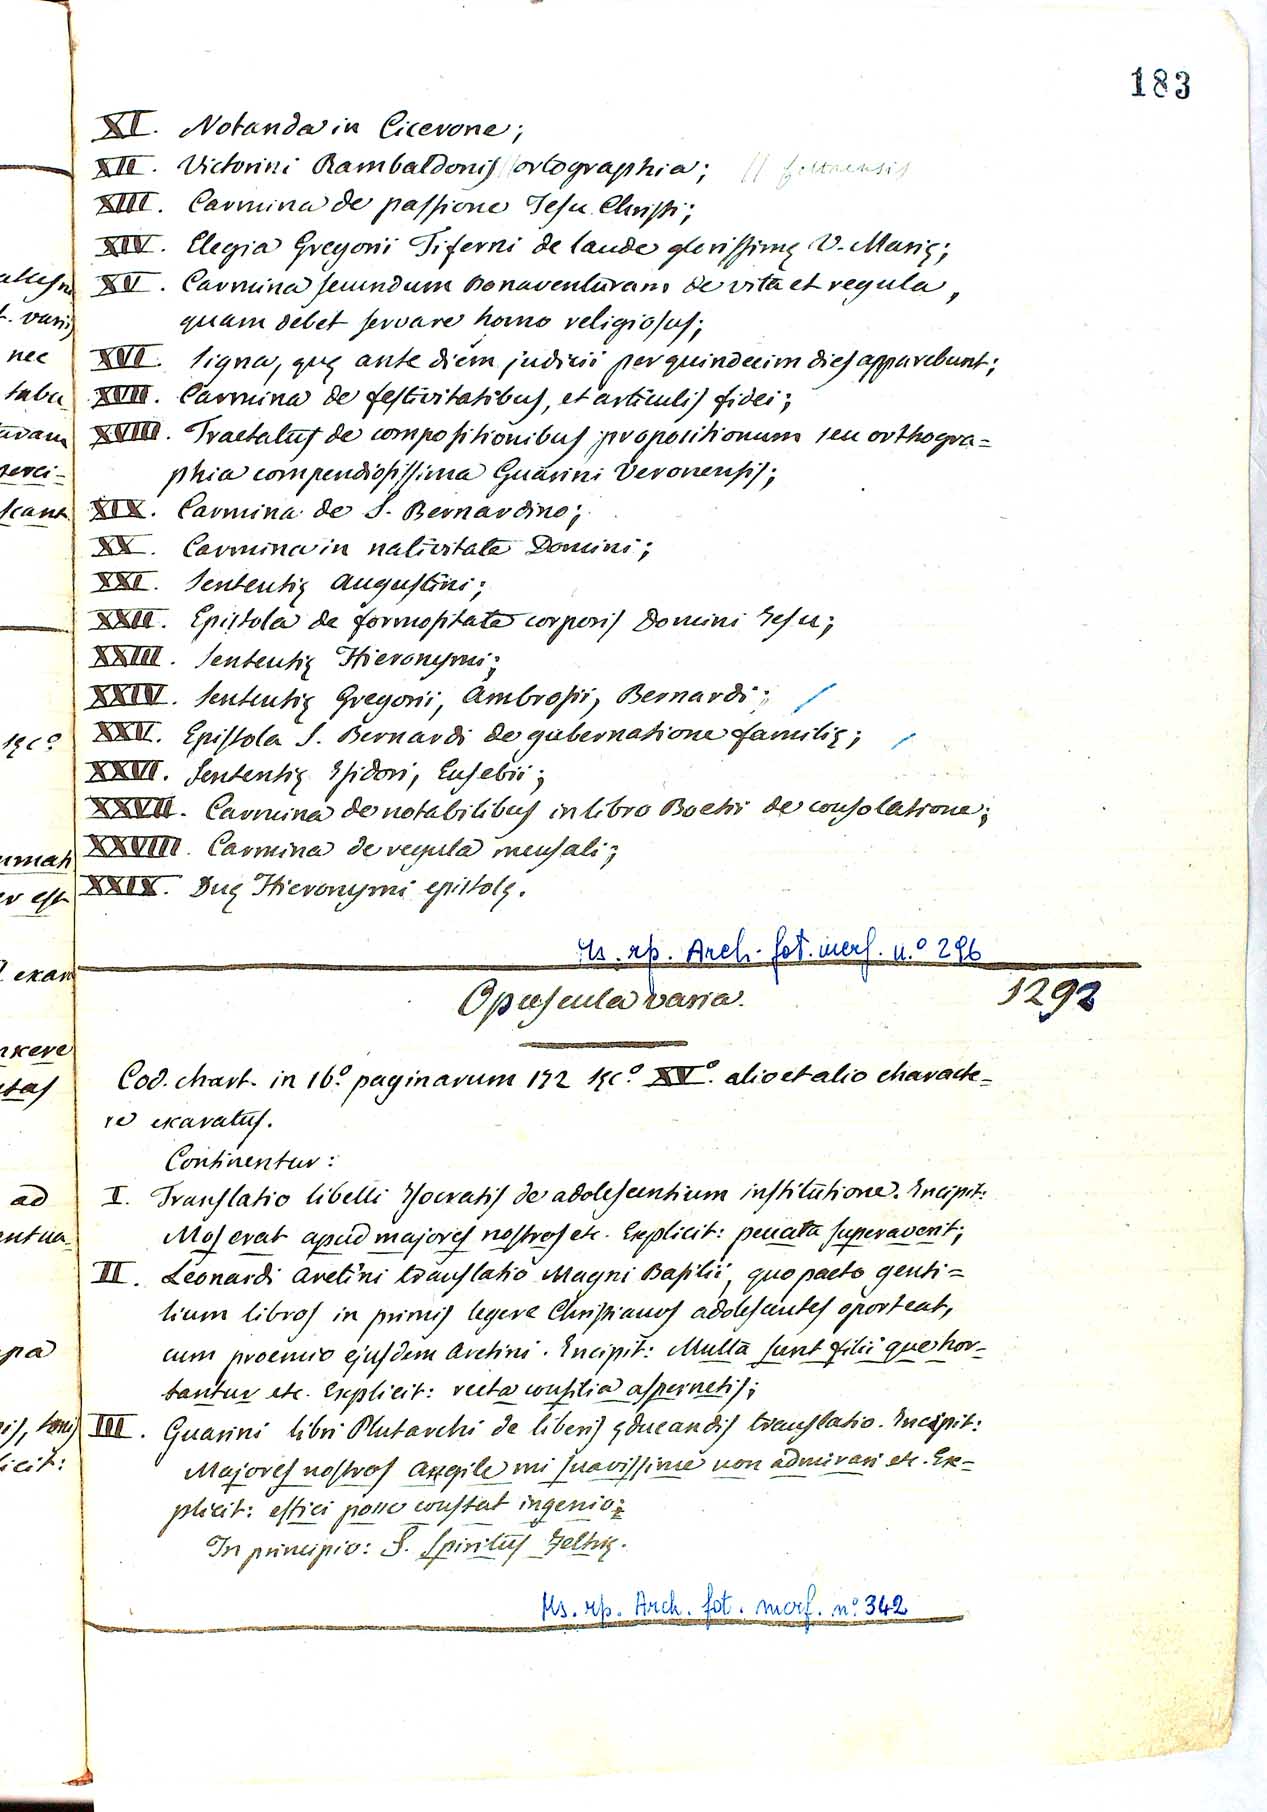 183
XI. Notanda in Cicerone;
XII. Victorini Rambaldonis // ortographia; // feltrensis
XIII. Carmina de passione Jesu Christi;
XIV. Elegia Gregorii Tiferni de laude glorissimę V. Marię;
XV. Carmina secundum Bonaventuram de vita et regula,
quam debet servare homo religiosus;
XVI. Signa, quę ante diem judicii per quindecim dies apparebunt;
XVII. Carmina de festivitatibus, et articulis fidei;
XVIII. Tractatus de compositionibus propositionum seu orthogra=
phia compendiosissima Guarini Veronensis;
XIX. Carmina de S. Bernardino;
XX. Carmina in nativitate Domini;
XXI. Sententię Augustini;
XXII. Epistola de formositate corporis Domini Jesu;
XXIII. Sententię Hieronymi;
XXIV. Sententię Gregorii, Ambrosii, Bernardi;
XXV. Epistola S. Bernardi de gubernatione familię;
XXVI. Sententię Isidori, Eusebii;
XXVII. Carmina de notabilibus in libro Boetii de consolatione;
XXVIII. Carmina de regula mensali;
XXIX. Duę Hieronymi epistolę.
Ms. rp. Arch. fot. merf. n.º 296
Opuscula varia. 1292
Cod. chart. in 16.º paginarum 172 sęc.º XVº. alio et alio characte=
re exaratus.
Continentur:
I. Translatio libelli Isocratis de adolescentium institutione. Incipit:
Mos erat apud majores nostros etc. Explicit: peccata superaverit;
II. Leonardi Aretini translatio Magni Basilii, quo pacto genti=
lium libros in primis legere Christianos adolescentes oporteat,
cum proemio ejusdem Aretini. Incipit: Multa sunt filii que hor=
tantur etc. Explicit: recta consilia aspernetis;
III. Guarini libri Plutarchi de liberis ęducandis translatio. Incipit:
Majores nostros Angile mi suavissime non admirari etc. Ex=
plicit: effici posse constat ingenio;
In principio: S. Spiritus Feltrię.
Ms. rp. Arch. fot. merf. nº 342